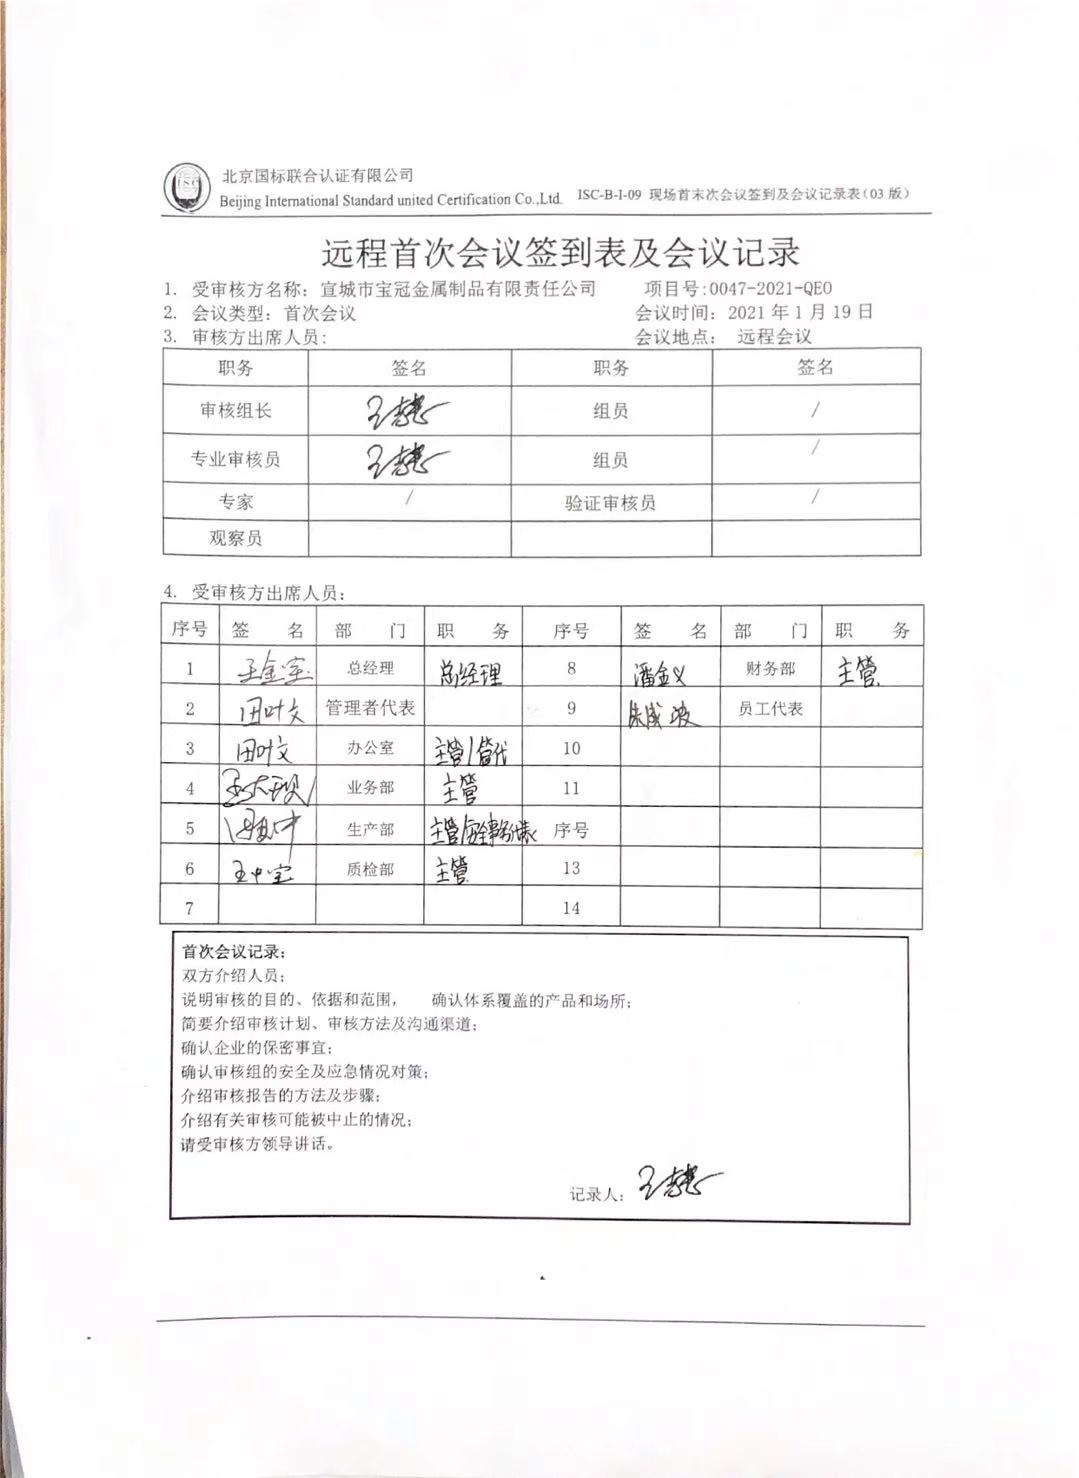 ISC
北京国标联合认证有限公司
Beijing International Standard united Certification Co.,Ltd. ISC-B-I-09 现场首末次会议签到及会议记录表(03 版)
远程首次会议签到表及会议记录
1. 受审核方名称：宣城市宝冠金属制品有限责任公司 项目号:0047-2021-QEO
2. 会议类型：首次会议 会议时间：2021 年 1 月 19 日
3. 审核方出席人员： 会议地点： 远程会议
职务 签名 职务 签名
审核组长 组员 /
专业审核员 组员 /
专家 / 验证审核员 /
观察员
4. 受审核方出席人员：
序号 签 名 部 门 职 务 序号 签 名 部 门 职 务
1 王金宝 总经理 总经理 8 潘金义 财务部 主管
2 田叶文 管理者代表 9 员工代表
3 田叶文 办公室 主管/管代 10
4 业务部 主管 11
5 生产部 序号
6 王中宝 质检部 主管 13
7 14
首次会议记录：
双方介绍人员；
说明审核的目的、依据和范围， 确认体系覆盖的产品和场所；
简要介绍审核计划、审核方法及沟通渠道；
确认企业的保密事宜；
确认审核组的安全及应急情况对策；
介绍审核报告的方法及步骤；
介绍有关审核可能被中止的情况；
请受审核方领导讲话。
记录人：